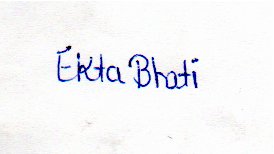 Ekta Bhati